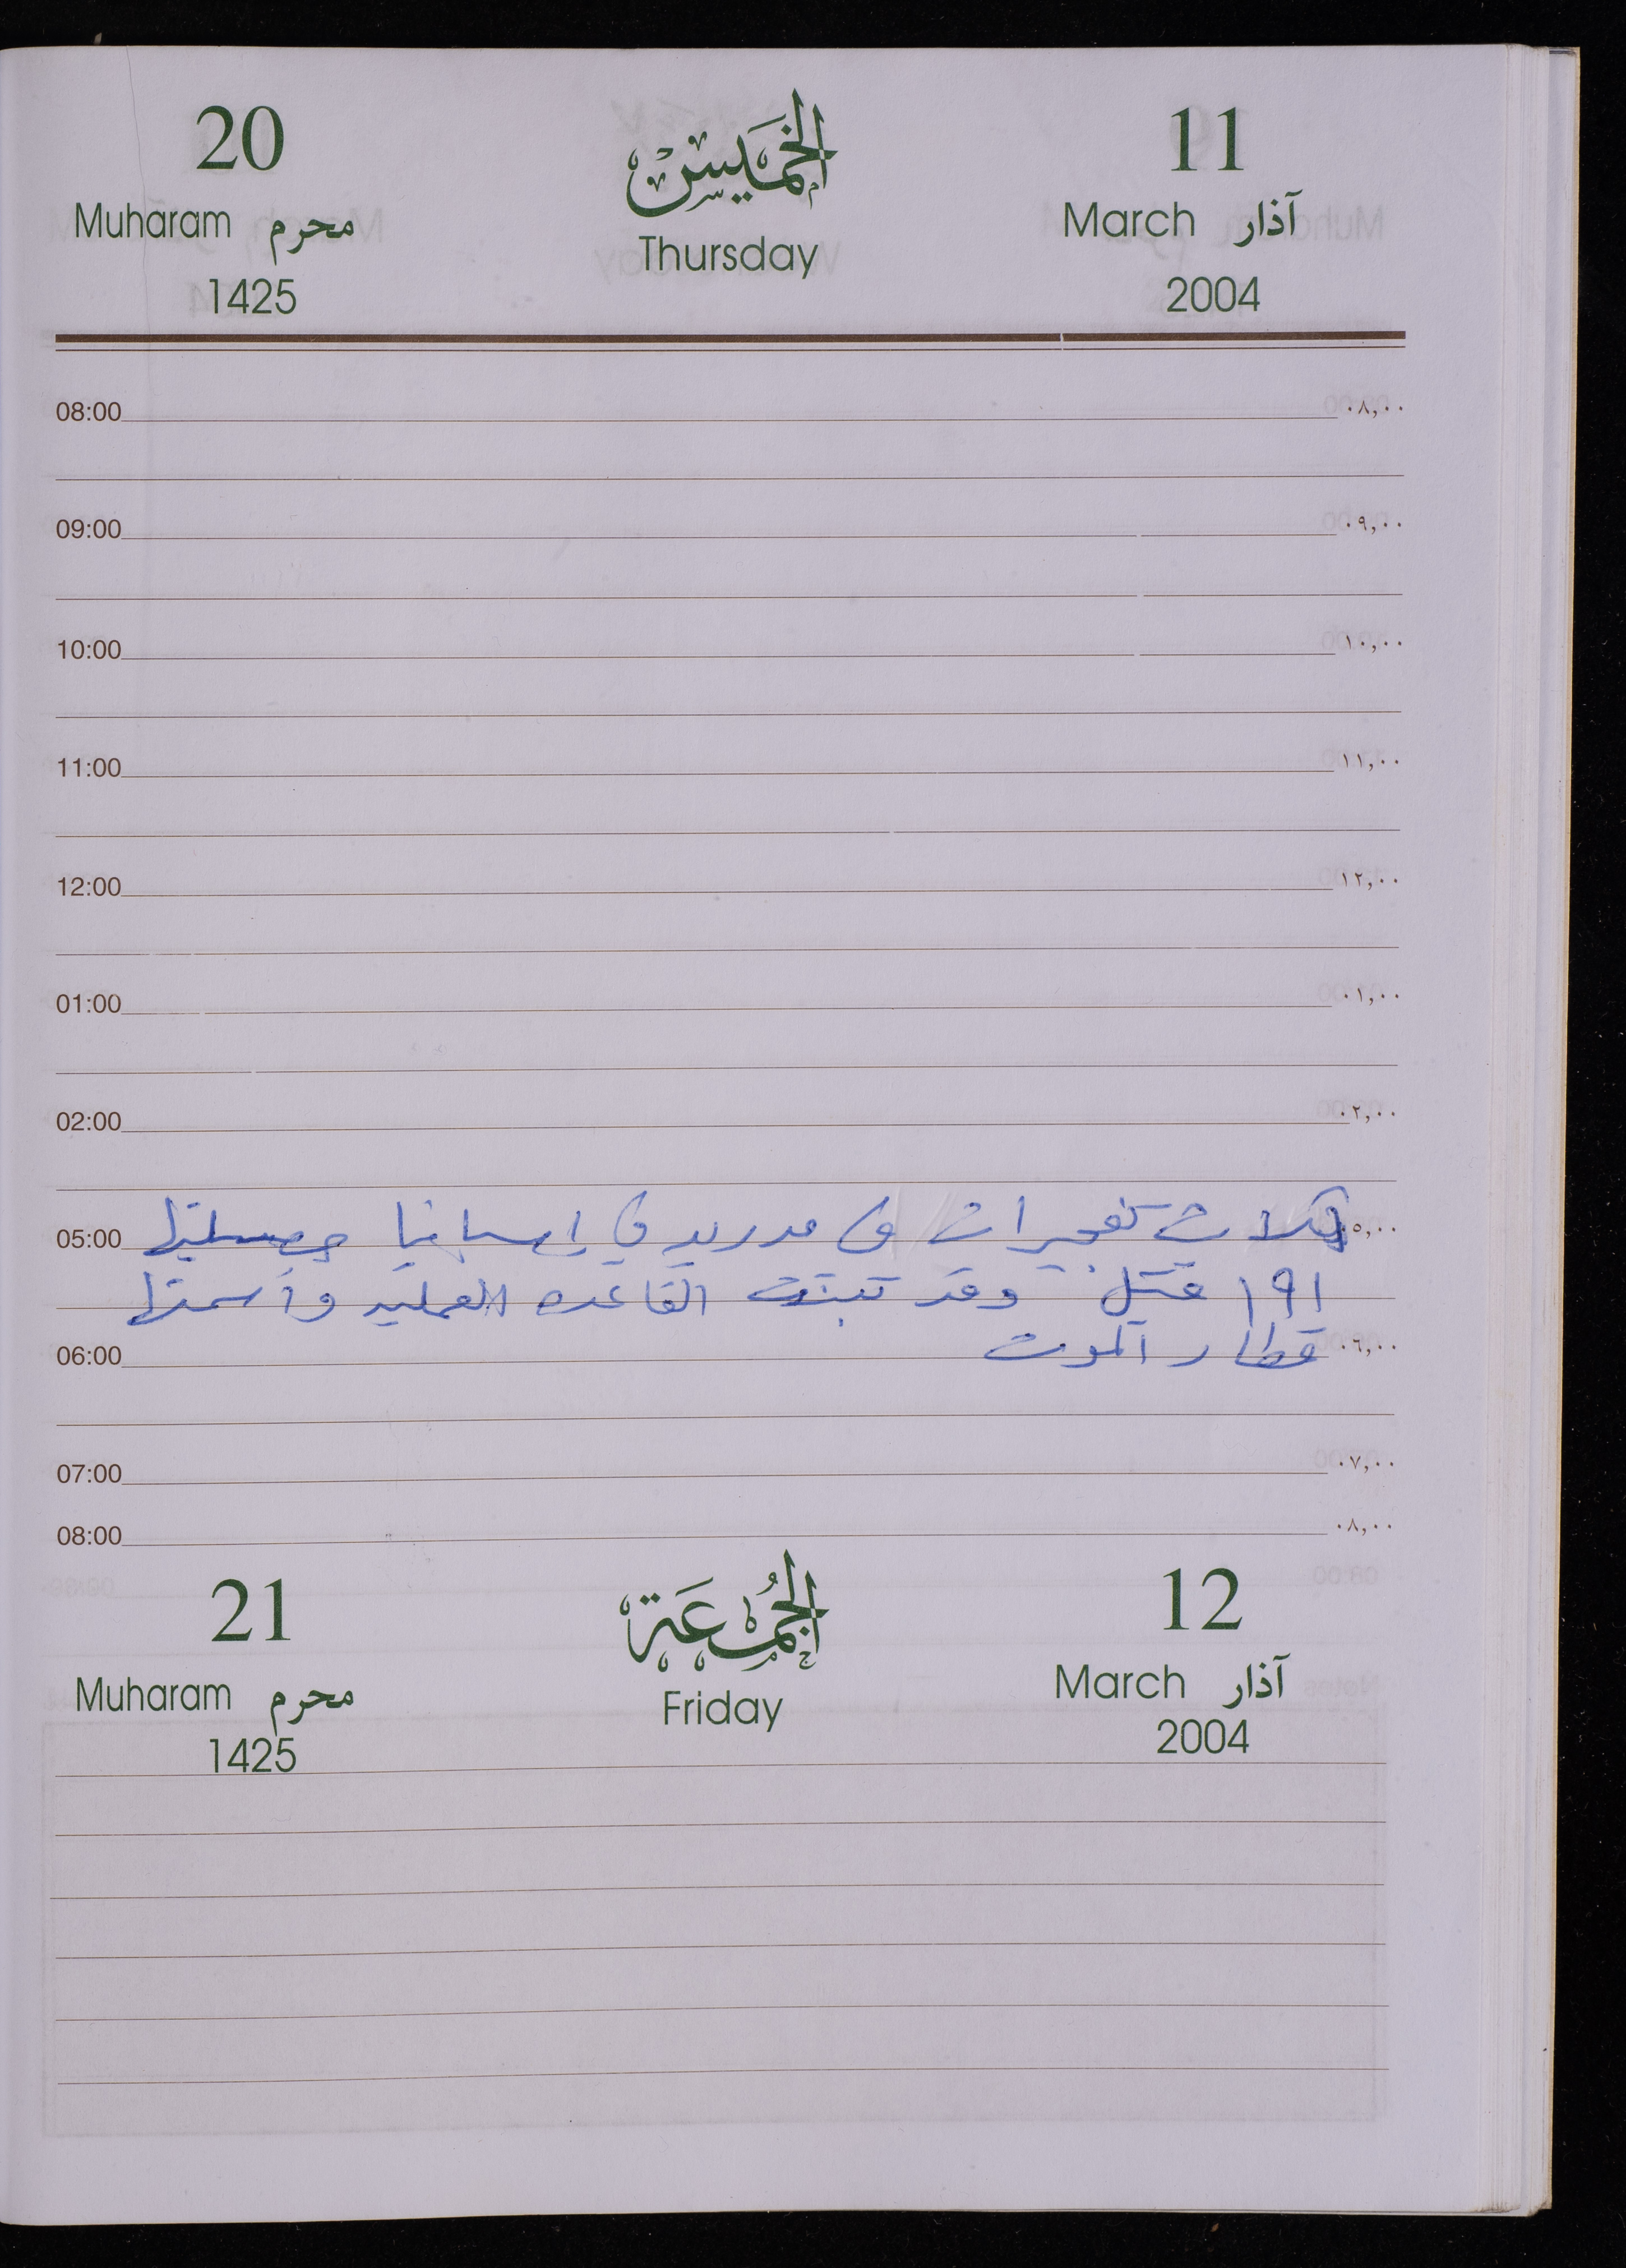 20 الخميس 11
Muharam محرم Thursday March آذار
1425 2004
08:00 ٠٨,٠٠
09:00 ٠٩,٠٠
10:00 ١٠,٠٠
11:00 ١١,٠٠
12:00 ١٢,٠٠
01:00 ٠١,٠٠
02:00 ٠٢,٠٠
05:00 ثلاث تفجيرات في مدريد في إسبانيا حصيلتها ٠٥,٠٠
١٩١ قتيل وقد تبنت القاعده العمليه وأسمتها
06:00 قطار الموت ٠٦,٠٠
07:00 ٠٧,٠٠
08:00 ٠٨,٠٠
21 الجمعة 12
Muharam محرم Friday March آذار
1425 2004